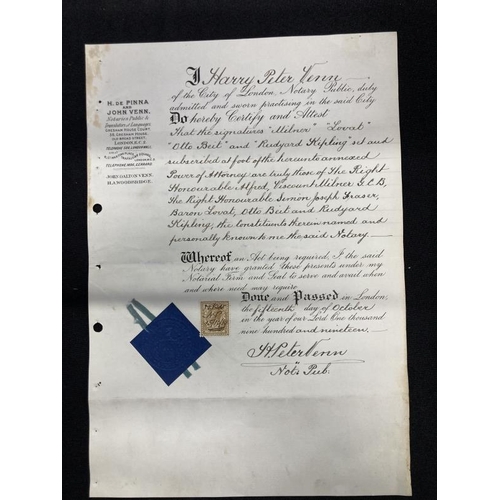 H. DE PINNA
AND
JOHN VENN,
Notaries Public &
Translators of Languages
LONDON, E.C.3
JOHN DALTON VENN.
H.A. WOODBRIDGE.
I Harry Peter Venn
of the City of London, Notary Public, duly
admitted and sworn practising in the said City
Do hereby Certify and Attest
That the signatures "Milner" "Lovat"
"Otto Beit" and "Rudyard Kipling" set and
subscribed at foot of the hereunto annexed
Power of Attorney are truly those of The Right
Honourable Alfred, Viscount Milner G.C.B,
The Right Honourable Simon Joseph Fraser,
Baron Lovat, Otto Beit and Rudyard
Kipling, the constituents therein named and
personally known to me the said Notary.
Whereof an Act being required, I the said
Notary have granted these presents under my
Notarial Firm and Seal to serve and avail when
and where need may require
Done and Passed in London,
the fifteenth day of October
in the year of our Lord One thousand
nine hundred and nineteen.
H. Peter Venn
Not. Pub.